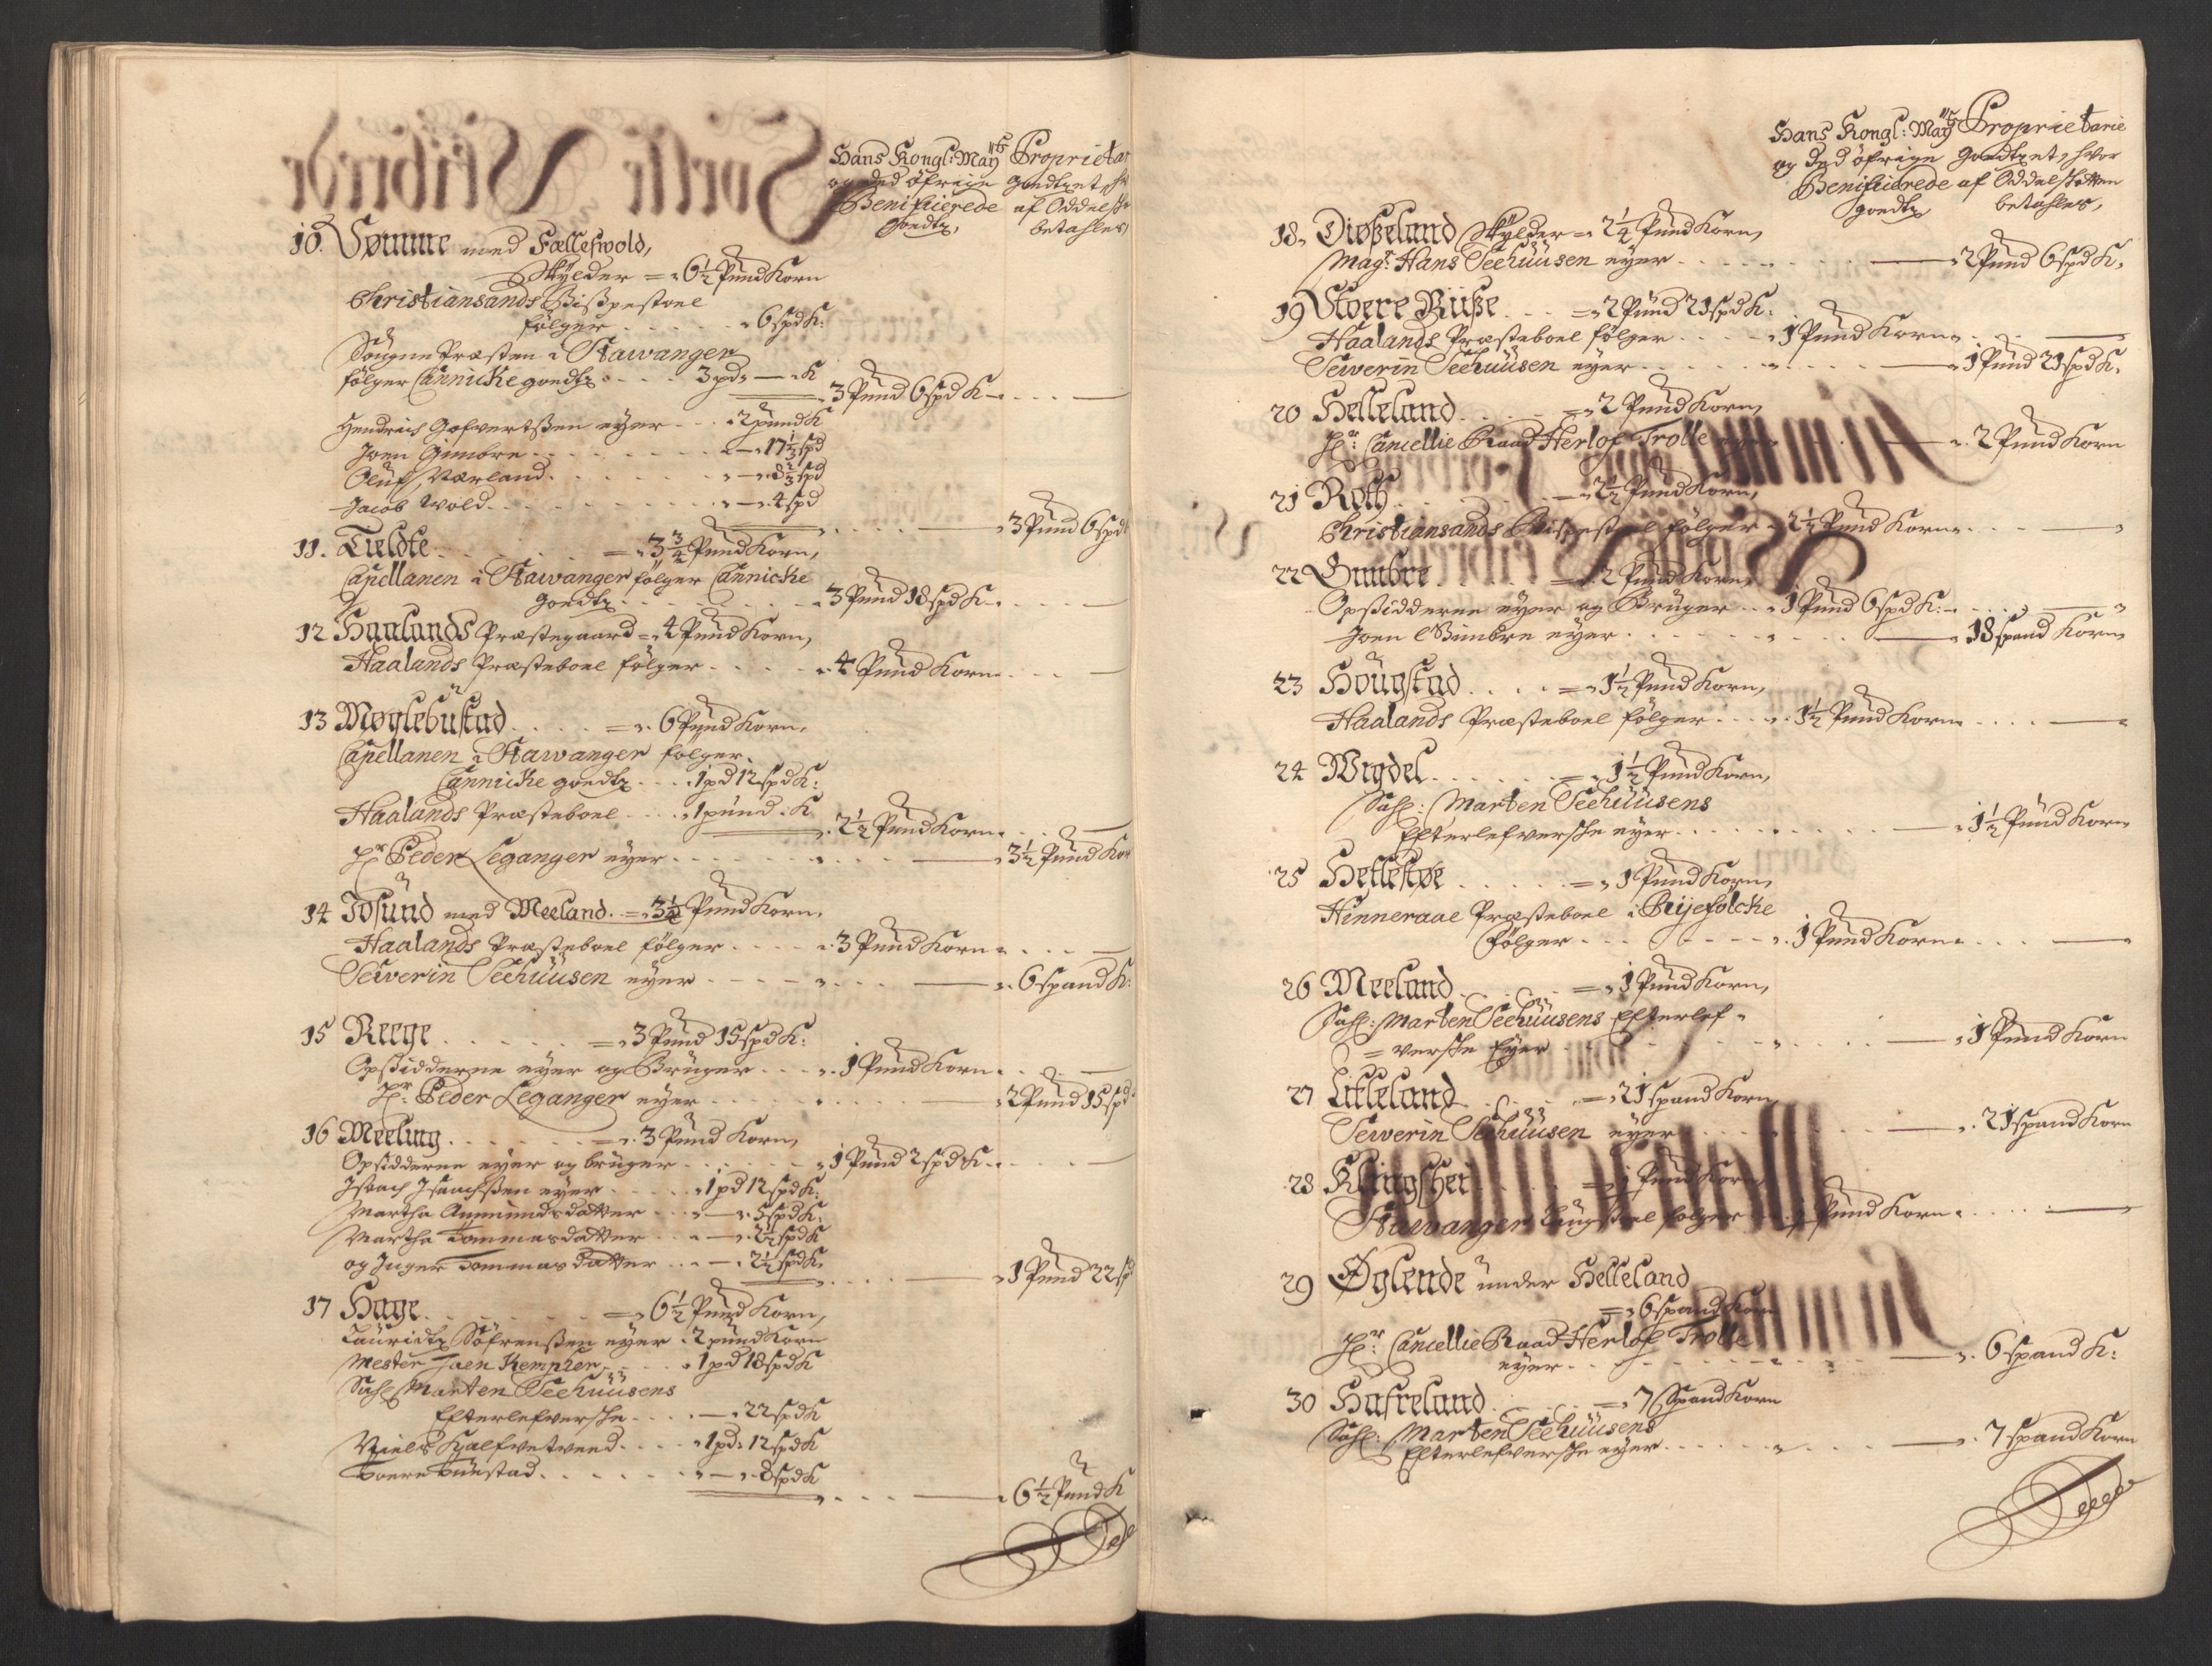 Hans Kongl: May^tz Proprietar
og ded öfrige goedtzet, h
Benificierede af Oddelsk
goedtz, betahles
10. Sømme med Fælleswold,
Skylder = 6½ Pund Korn
Christiansands Bispestoel
fölger 6 spd K:
Sougne Præsten i Stawanger
fölger Cannicke goedtz 3 pd, — K
3 Pund 6 spd K
Hendrich Gofvertsen eyer 2 pund K
Joen Gimbre — 17⅓ spd
Oluf Værland — 8⅔ spd
Jacob Wold — 4 spd
3 Pund 6 spd
11. Tieldte = 3¾ Pund Korn,
Capellanen i Stawanger fölger Cannicke
goedtz 3 Pund 18 spd K
12 Haalands Præstegaard = 4 Pund Korn,
Haalands Præsteboel fölger 4 Pund Korn
13 Møglebustad = 6 Pund Korn,
Capellanen i Stawanger fölger
Cannicke goedtz 1 pd 12 spd K:
Haalands Præsteboel 1 pund K
2½ Pund Korn
Hr Peder Leganger eyer 3½ Pund Kor
14 Josund med Meeland = 3¼ Pund Korn,
Haalands Præsteboel fölger 3 Pund Korn
Severin Seehuusen eyer 6 spand K:
15 Reege = 3 Pund 15 spd K:
Opsidderne eyer og Bruger 1 Pund Korn
Hr Peder Leganger eyer 2 Pund 15 spd
16 Meeling = 3 Pund Korn,
Opsidderne eyer og bruger 1 Pund 2 spd K
Isach Isachsen eyer 1 pd 12 spd K:
Martha Aumundsdatter — 5 spd K.
Martha Tommasdatter — 2½ spd K
og Inger Tommasdatter — 2½ spd K
1 Pund 22 sp
17 Hage = 6½ Pund Korn,
Lauridtz Söfrensen eyer 2 pund Korn
Mester Joen Kempher 1 pd 18 spd K
Sahl Marten Seehuusens
Efterlefverske — 22 spd K
Niels Kalfvetveed 1 pd: 12 spd K
Toere Tuestad — 8 spd K
6½ Pund K
Hans Kongl: May^tz Proprietarie
og ded öfrige goedtzet, hvor
Benificierede af Oddelskatten
goedtz betahles,
18. Diøßeland Skylder = 2¼ Pund Korn,
Magr Hans Seehuusen eyer 2 Pund 6 spd K,
19 Stoere Riiße = 2 Pund 21 spd K:
Haalands Præsteboel fölger 1 Pund Korn
Severin Seehuusen eyer 1 Pund 21 spd K,
20 Helleland = 2 Pund Korn,
Hr Cancellie Raad Herlof Trolle 2 Pund Korn
21 Roth = 2½ Pund Korn,
Christiansands Bispestoel fölger 2½ Pund Korn
22 Gimbre = 2 Pund Korn,
Opsidderne eyer og Bruger 1 Pund 6 spd K:
Joen Gimbre eyer 18 spand Korn
23 Höugstad = 1½ Pund Korn,
Haalands Præsteboel fölger 1½ Pund Korn
24 Wigdel = 1½ Pund Korn,
Sahl: Marten Seehuusens
Efterlefverske eyer 1½ Pund Korn
25 Hellestøe = 1 Pund Korn,
Hinneraae Præsteboel i Ryefolcke
Fölger 1 Pund Korn
26 Meeland = 1 Pund Korn,
Sahl: Marten Seehuusens Efterlef-
= verske Eyer 1 Pund Korn
27 Litleland = 21 spand Korn
Severin Seehuusen eyer 21 spand Korn
28 Klingshei = 1 Pund Korn
Stawanger fölger 1 Pund Korn
29 Øglende under Helleland
= 6 spand Korn
Hr: Cancellie Raad Herlof Trolle
eyer 6 spand K:
30 Hafreland = 7 Spand Korn
Sahl: Marten Seehuusens
Efterlefverske eyer 7 spand Korn